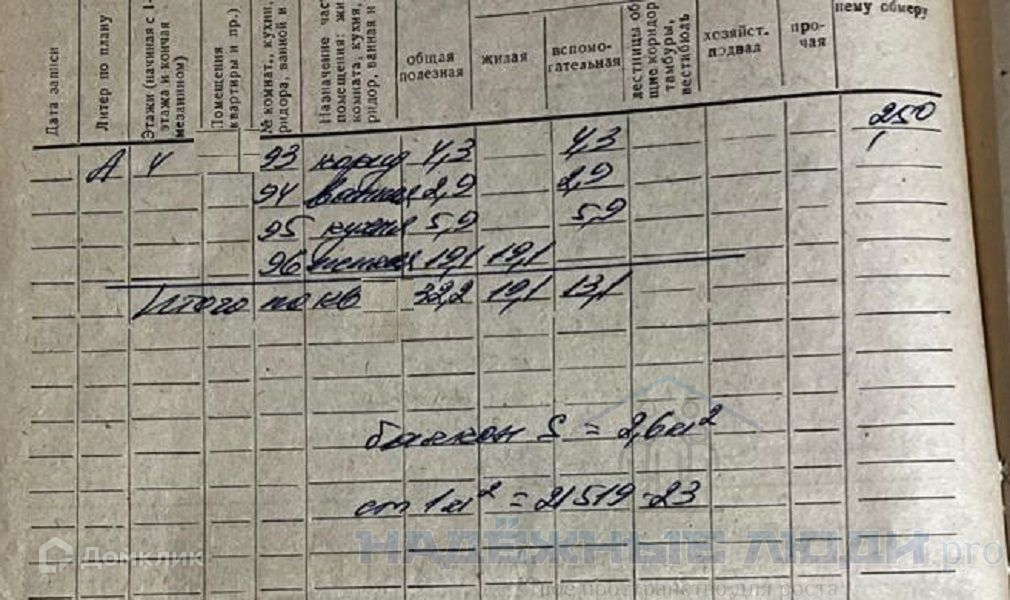 нему обмеру
Дата записи
Литер по плану
Этажи (начиная с 1-
этажа и кончая
мезанином)
Помещения
квартиры и пр.)
№ комнат, кухни,
ридора, ванной и
Назначение част
помещения: жи
комната, кухня,
ридор, ванная и
общая
полезная
жилая
вспомо-
гательная
лестницы об
щие коридор
тамбуры,
вестибюль
хозяйст.
подвал
про-
чая
250
А 4 93 корид 4,3 4,3
94 ванная 2,9 2,9
95 кухня 5,9 5,9
96 19,1 19,1
Итого по кв 32,2 19,1 13,1
балкон S = 2,6 м²
ст 1 м² = 21519-23
Домклик
НАДЁЖНЫЕ ЛЮДИ.pro
пространство для роста